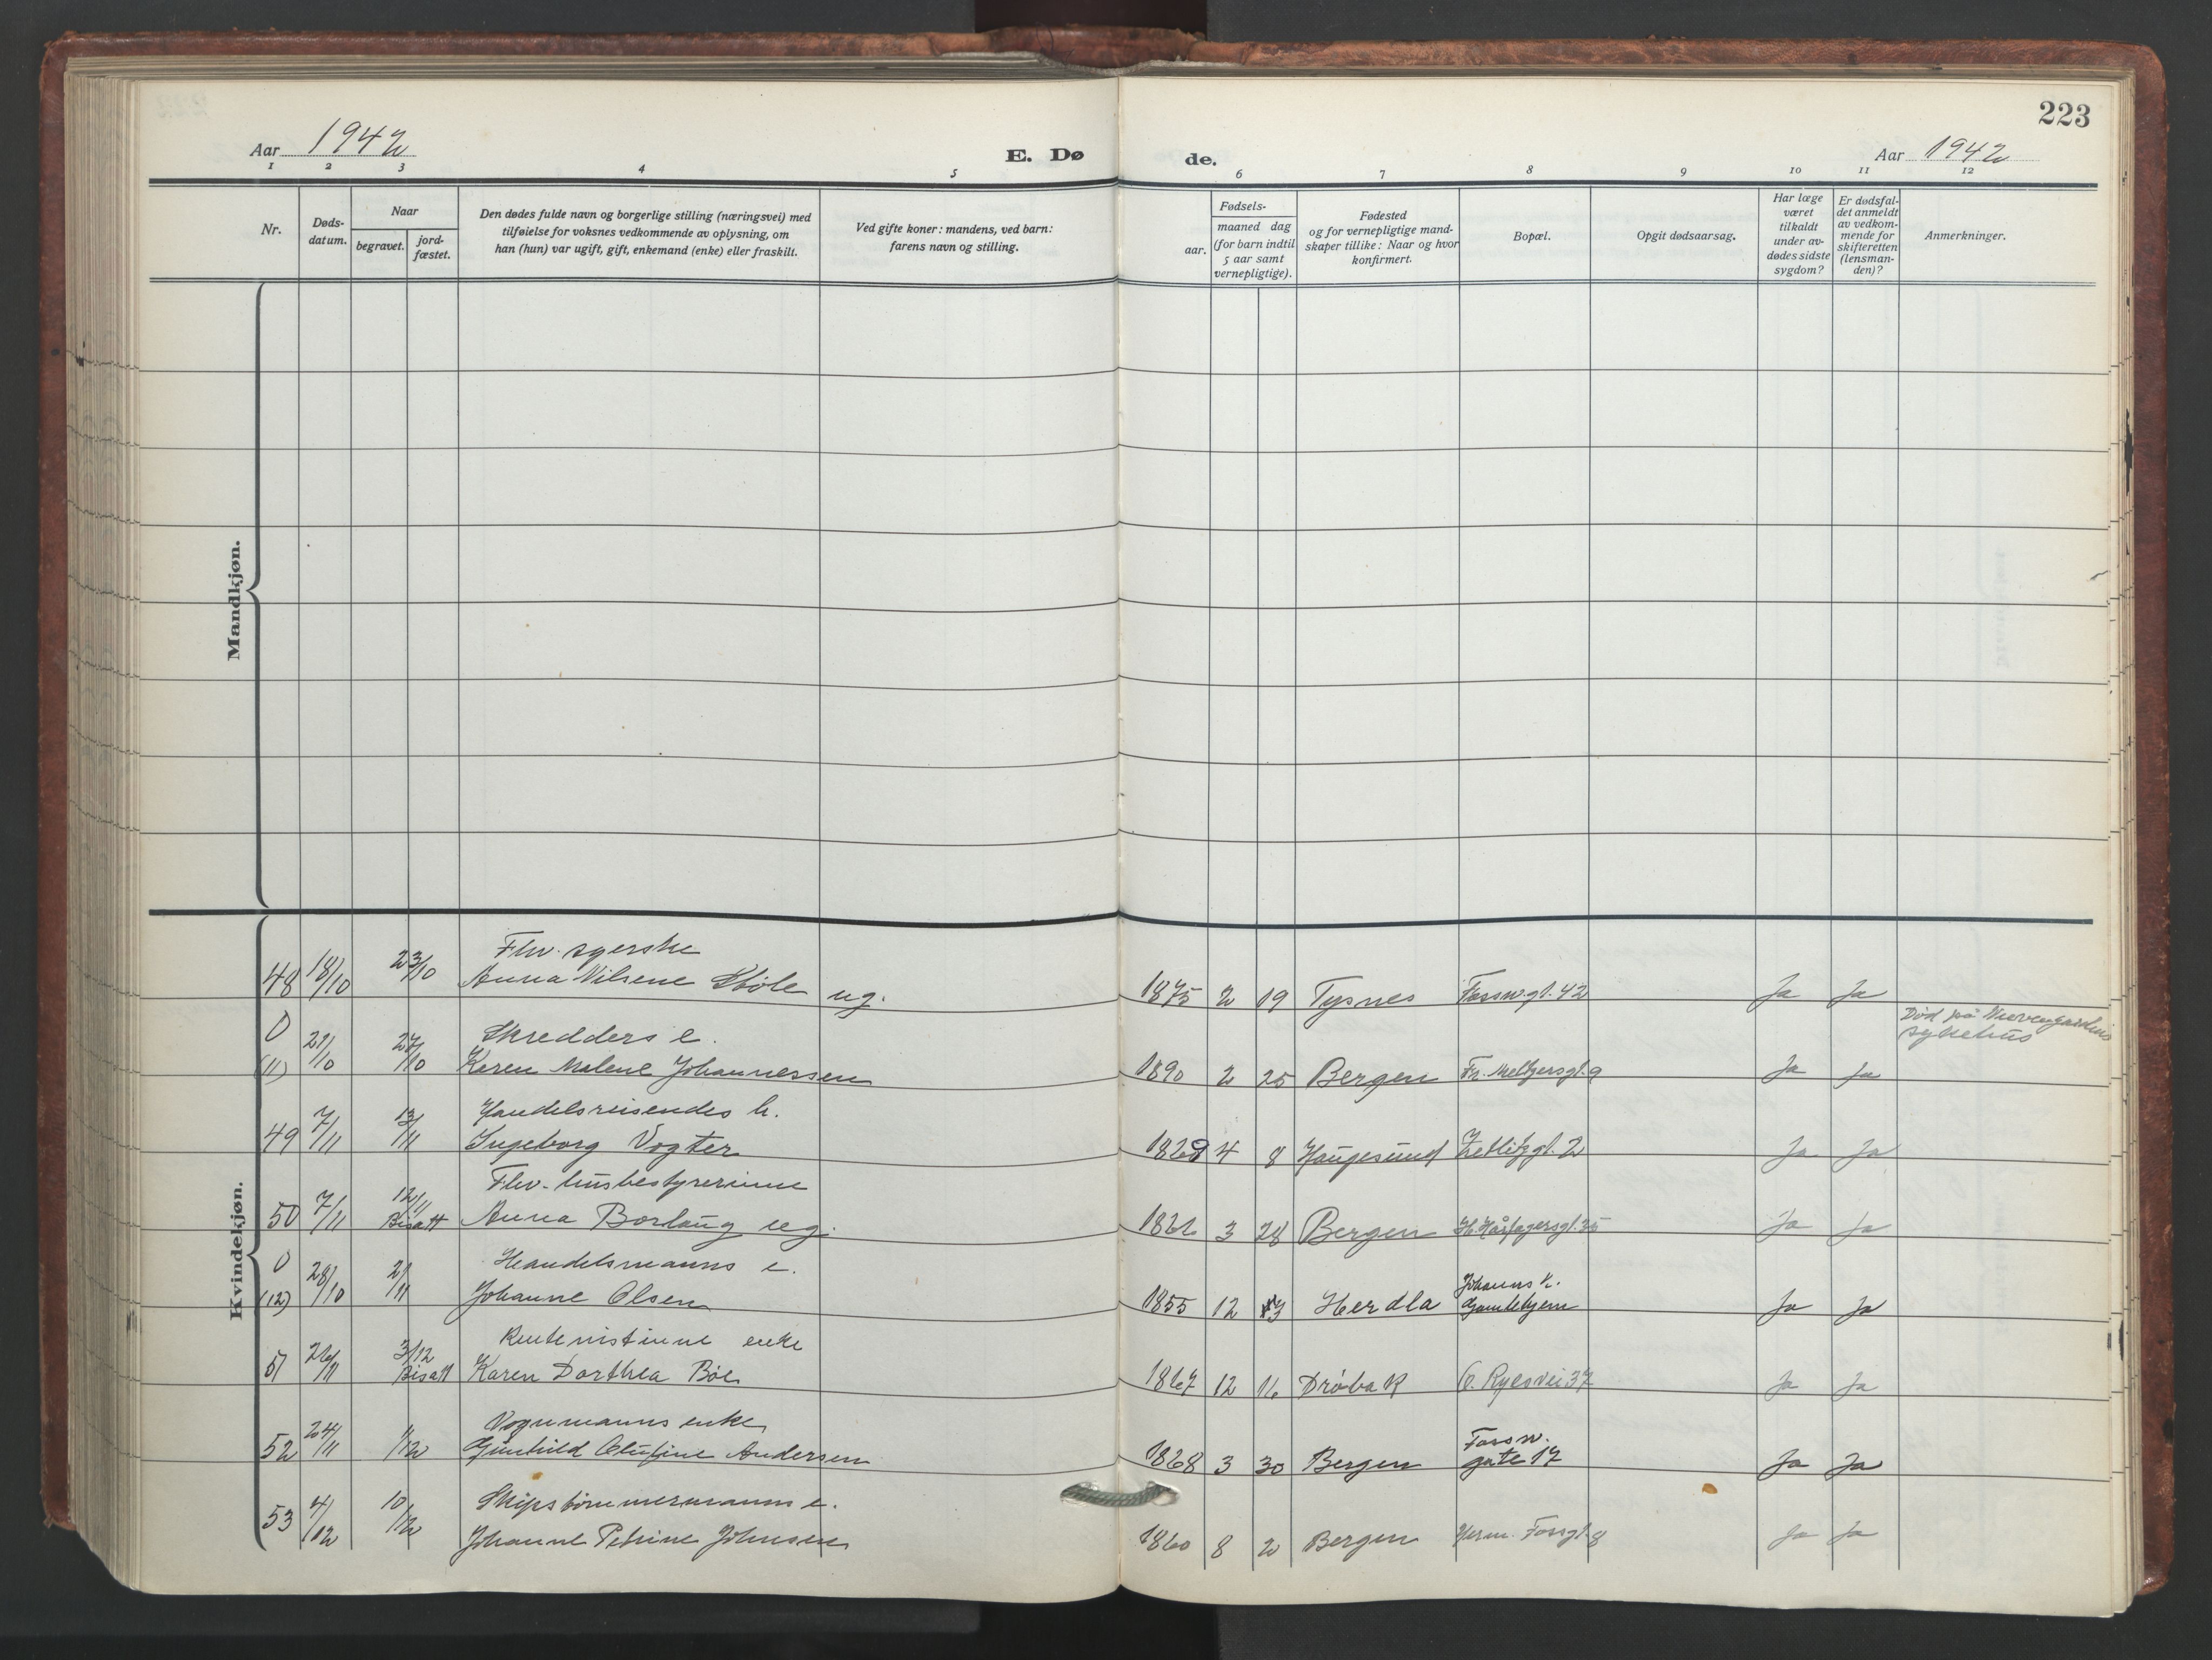 223
Aar 1942
E. Døde.
Aar 1942
1 2 3 4 5 6 7 8 9 10 11 12
Nr.
Døds-
datum.
Naar
begravet.
jord-
fæstet.
Den dødes fulde navn og borgerlige stilling (næringsvei) med
tilføielse for voksnes vedkommende av oplysning, om
han (hun) var ugift, gift, enkemand (enke) eller fraskilt.
Ved gifte koner: mandens, ved barn:
farens navn og stilling.
Fødsels-
aar.
maaned dag
(for barn indtil
5 aar samt
vernepligtige).
Fødested
og for vernepligtige mand-
skaper tillike: Naar og hvor
konfirmert.
Bopæl.
Opgit dødsaarsag.
Har læge
været
tilkaldt
under av-
dødes sidste
sygdom?
Er dødsfal-
det anmeldt
av vedkom-
mende for
skifteretten
(lensman-
den)?
Anmerkninger.
Mandkjøn.
Kvindekjøn.
Fhv. syerske
48 18/10 23/10 Anna Nilsene ug. 1875 2 19 Tysnes Fossw.gt. 42 Ja Ja
0 Skredders e. Død på
sykehus
(11) 21/10 27/10 Karen Malene Johannessen 1890 2 25 Bergen Fr. Meltzersgt. 9 Ja Ja
Handelsreisendes h.
49 7/11 13/11 Ingeborg Vogter 1869 4 8 Haugesund Zetlitzgt. 2 Ja Ja
Fhv. husbestyrerinne
50 7/11 12/11 Bisatt Anna Borlaug ug. 3 28 Bergen H. Hårfagersgt. 35 Ja Ja
0 Handelsmanns e. Johanns k.
(12) 28/10 2/11 Johanne Olsen 1855 12 Herdla Gamlehjem Ja Ja
Rentenistinne enke
51 26/11 3/12 Bisatt Karen Dorthea Bøe 1867 12 16 Drøbak O. Ryesvei 37 Ja Ja
Vognmanns enke Fossw.
52 24/11 1/12 Gunhild Olufine Andersen 1868 3 30 Bergen gate 17 Ja Ja
Skipstømmermanns e.
53 4/12 10/12 Johanne Petrine Johnsen 1860 8 2 Bergen Herm. Fossgt. 8 Ja Ja